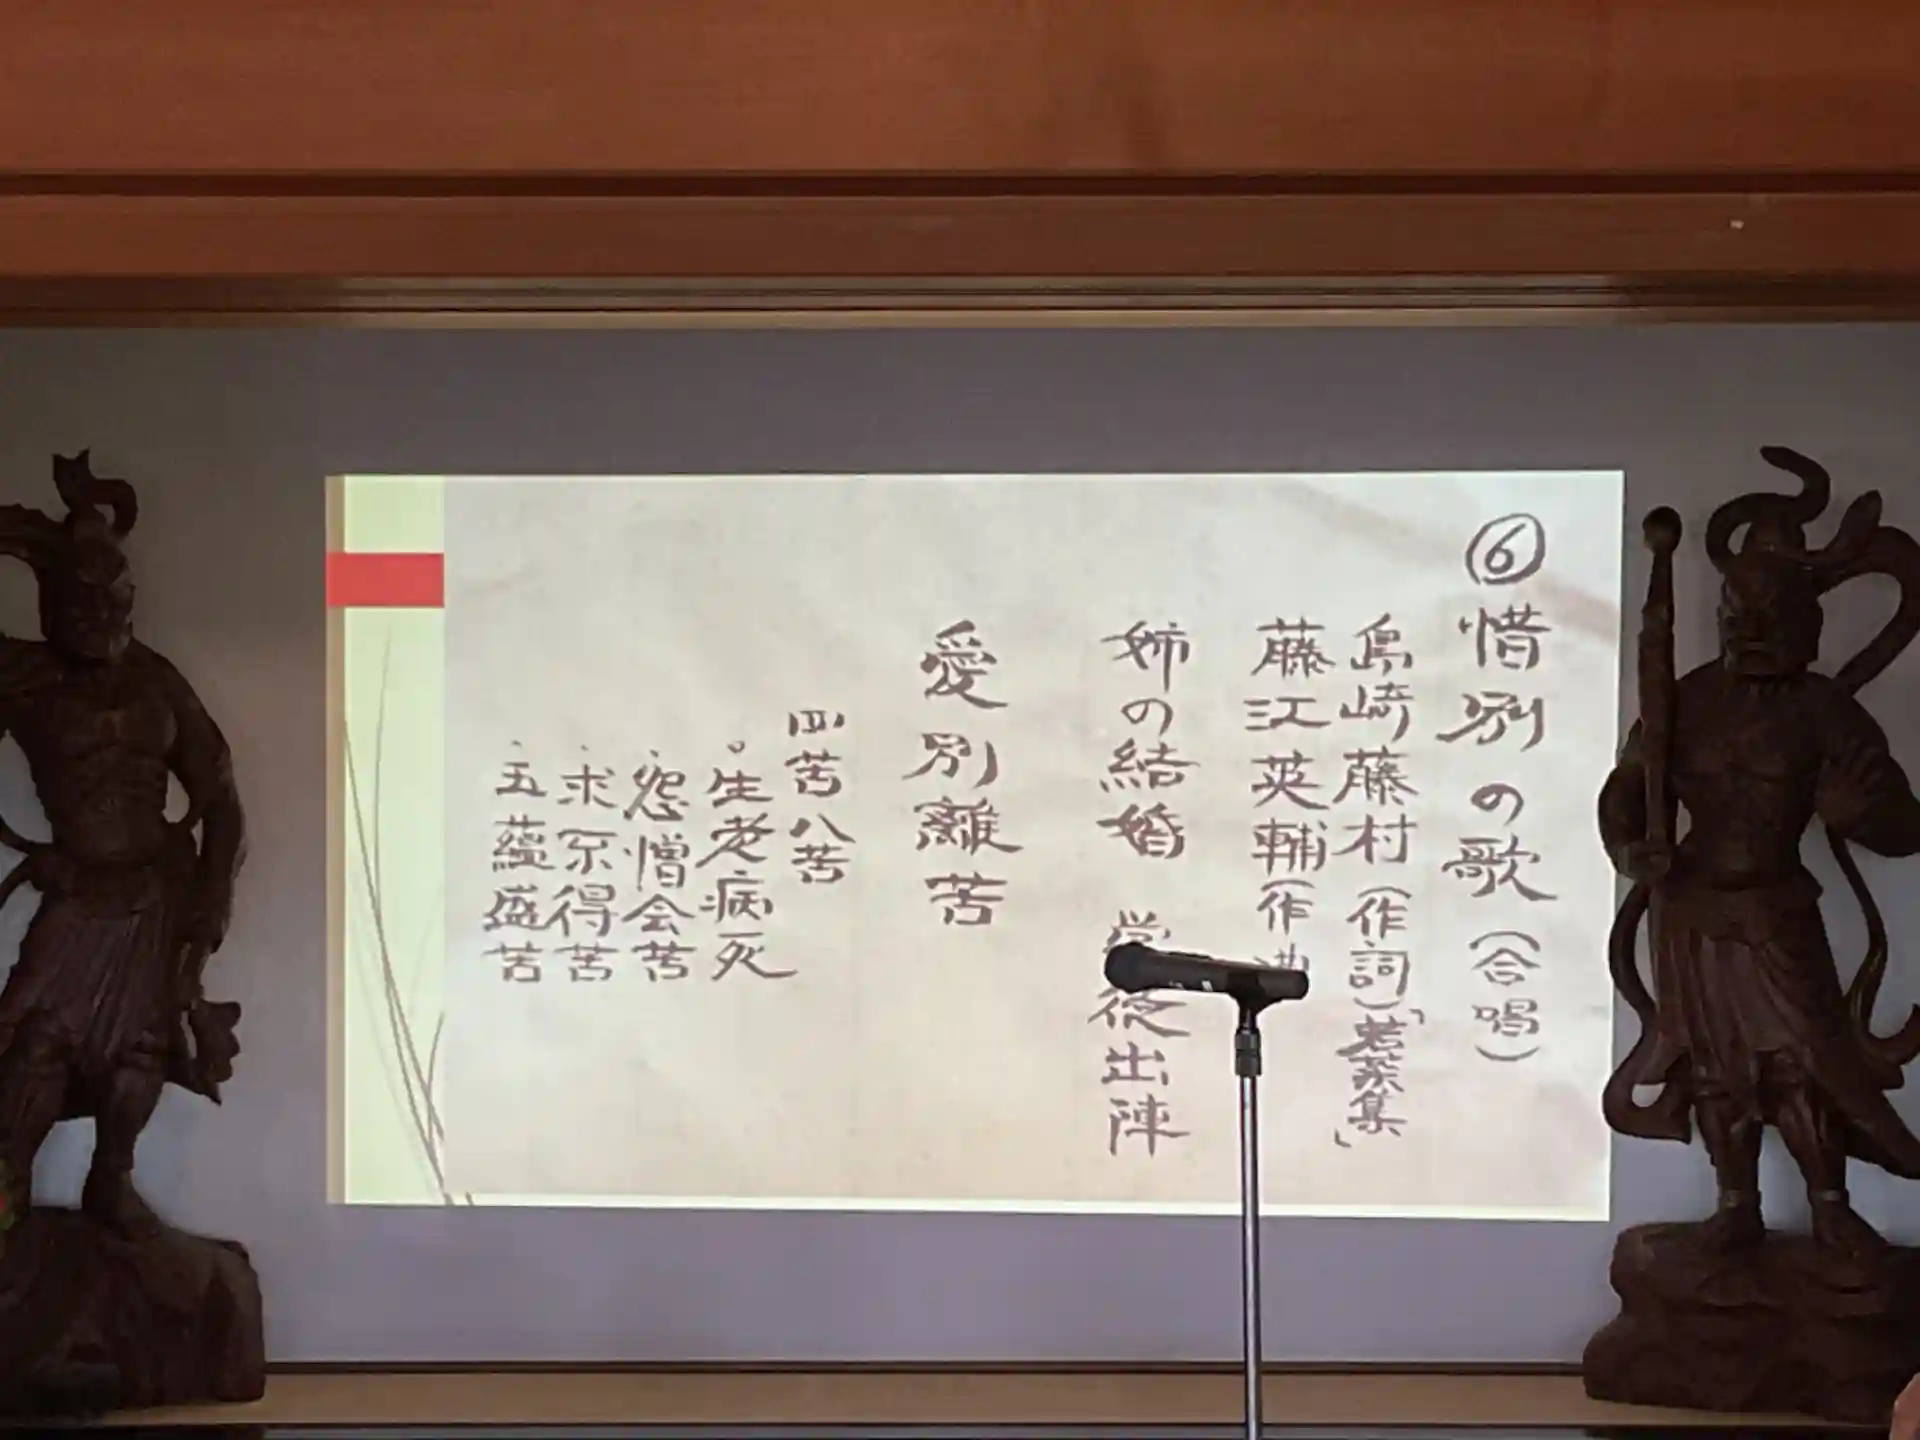 ⑥惜別の歌(合唱)
島崎藤村(作詞)「若菜集」
藤江英輔(作
姉の結婚 学徒出陣
愛別離苦
四苦八苦
。生老病死
・怨憎会苦
・求不得苦
・五蘊盛苦